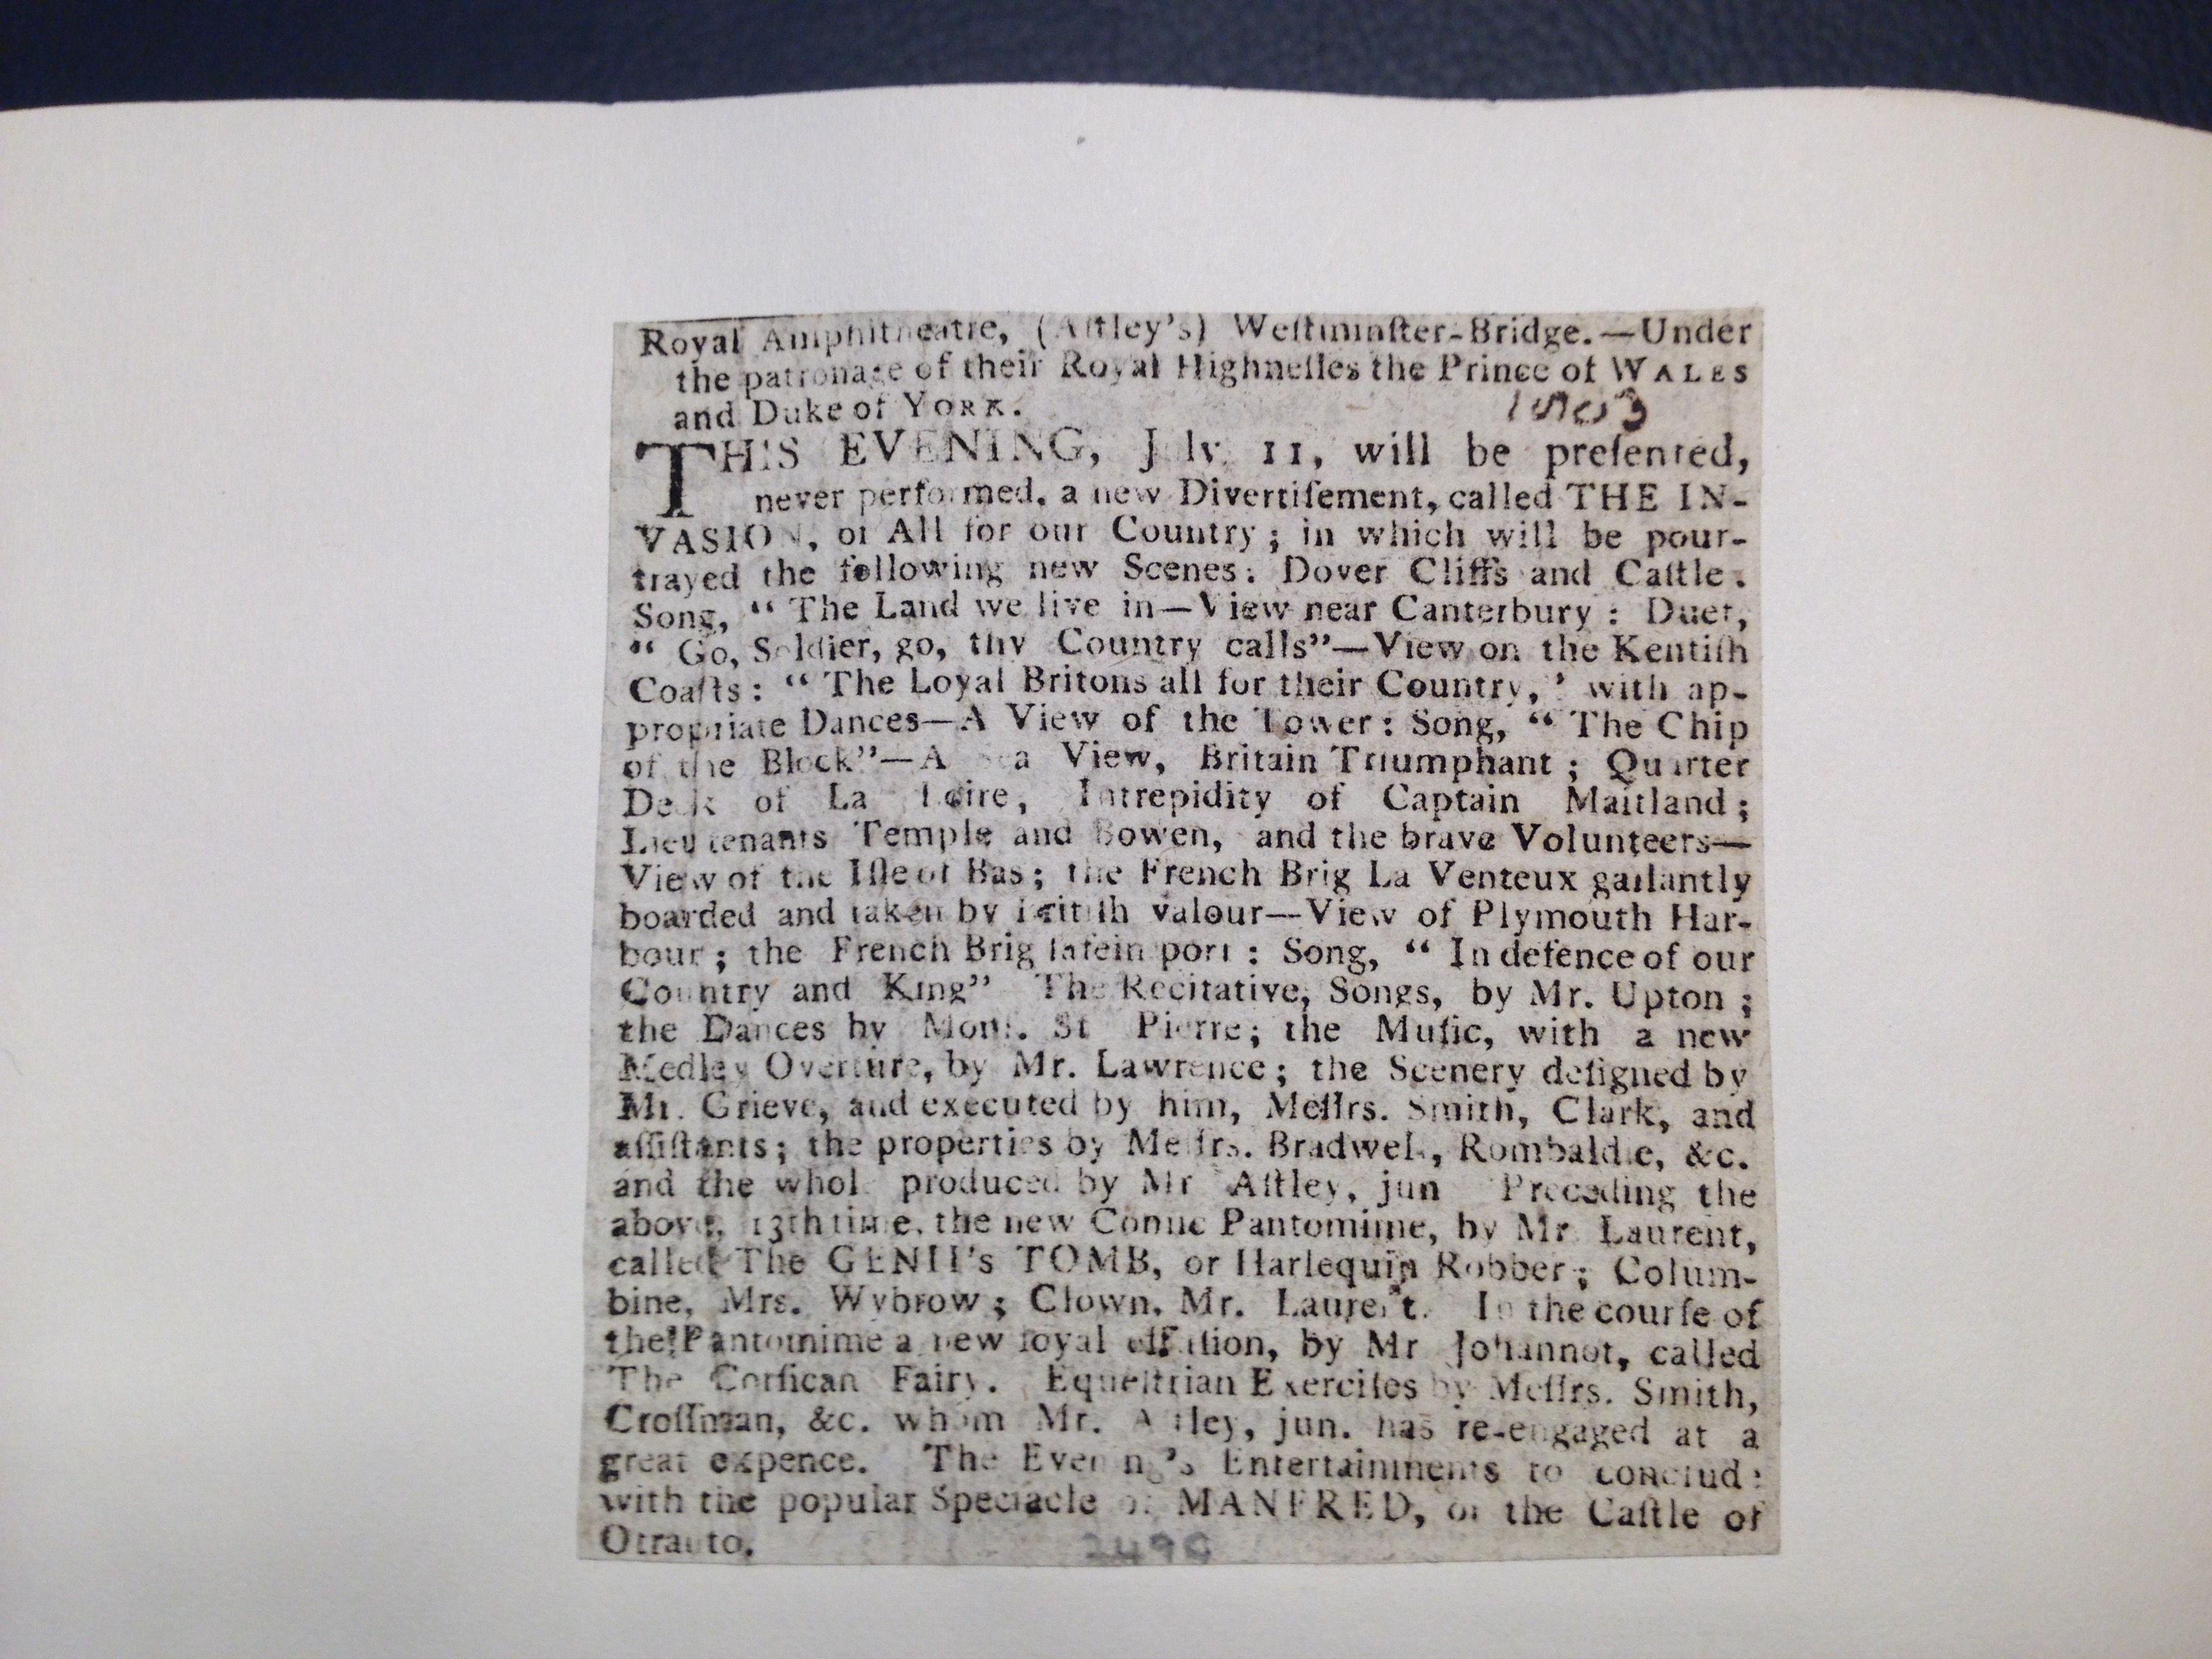 Royal Amphitheatre, (Aſtley's) Weſtminſter-Bridge.—Under
the patronage of their Royal Highneſſes the Prince of WALES
and Duke of YORK.
1803
THIS EVENING, July 11, will be preſented,
never performed, a new Divertiſement, called THE IN-
VASION, or All for our Country; in which will be pour-
trayed the following new Scenes: Dover Cliffs and Caſtle.
Song, “ The Land we live in—View near Canterbury : Duet,
“ Go, Soldier, go, thy Country calls”—View on the Kentiſh
Coaſts: “ The Loyal Britons all for their Country,’ with ap-
propriate Dances—A View of the Tower: Song, “ The Chip
of the Block”—A Sea View, Britain Triumphant ; Quarter
Deck of La Loire, Intrepidity of Captain Maitland ;
Lieutenants Temple and Bowen, and the brave Volunteers—
View of the Iſle of Bas; the French Brig La Venteux gallantly
boarded and taken by Britiſh valour—View of Plymouth Har-
bour ; the French Brig ſafe in port : Song, “ In defence of our
Country and King” The Recitative, Songs, by Mr. Upton ;
the Dances by Monſ. St Pierre; the Muſic, with a new
Medley Overture, by Mr. Lawrence ; the Scenery deſigned by
Mr. Grieve, and executed by him, Meſſrs. Smith, Clark, and
aſſiſtants; the properties by Meſſrs. Bradwell, Rombaldie, &c.
and the whole produced by Mr Aſtley, jun Preceding the
above, 13th time, the new Comic Pantomime, by Mr Laurent,
called The GENII's TOMB, or Harlequin Robber ; Colum-
bine, Mrs. Wybrow ; Clown, Mr. Laurent. In the courſe of
the Pantomime a new loyal effuſion, by Mr Johannot, called
The Corſican Fairy. Equeſtrian Exerciſes by Meſſrs. Smith,
Croſſman, &c. whom Mr. Aſtley, jun. has re-engaged at a
great expence. The Evening's Entertainments to conclude
with the popular Spectacle of MANFRED, or the Caſtle of
Otranto.